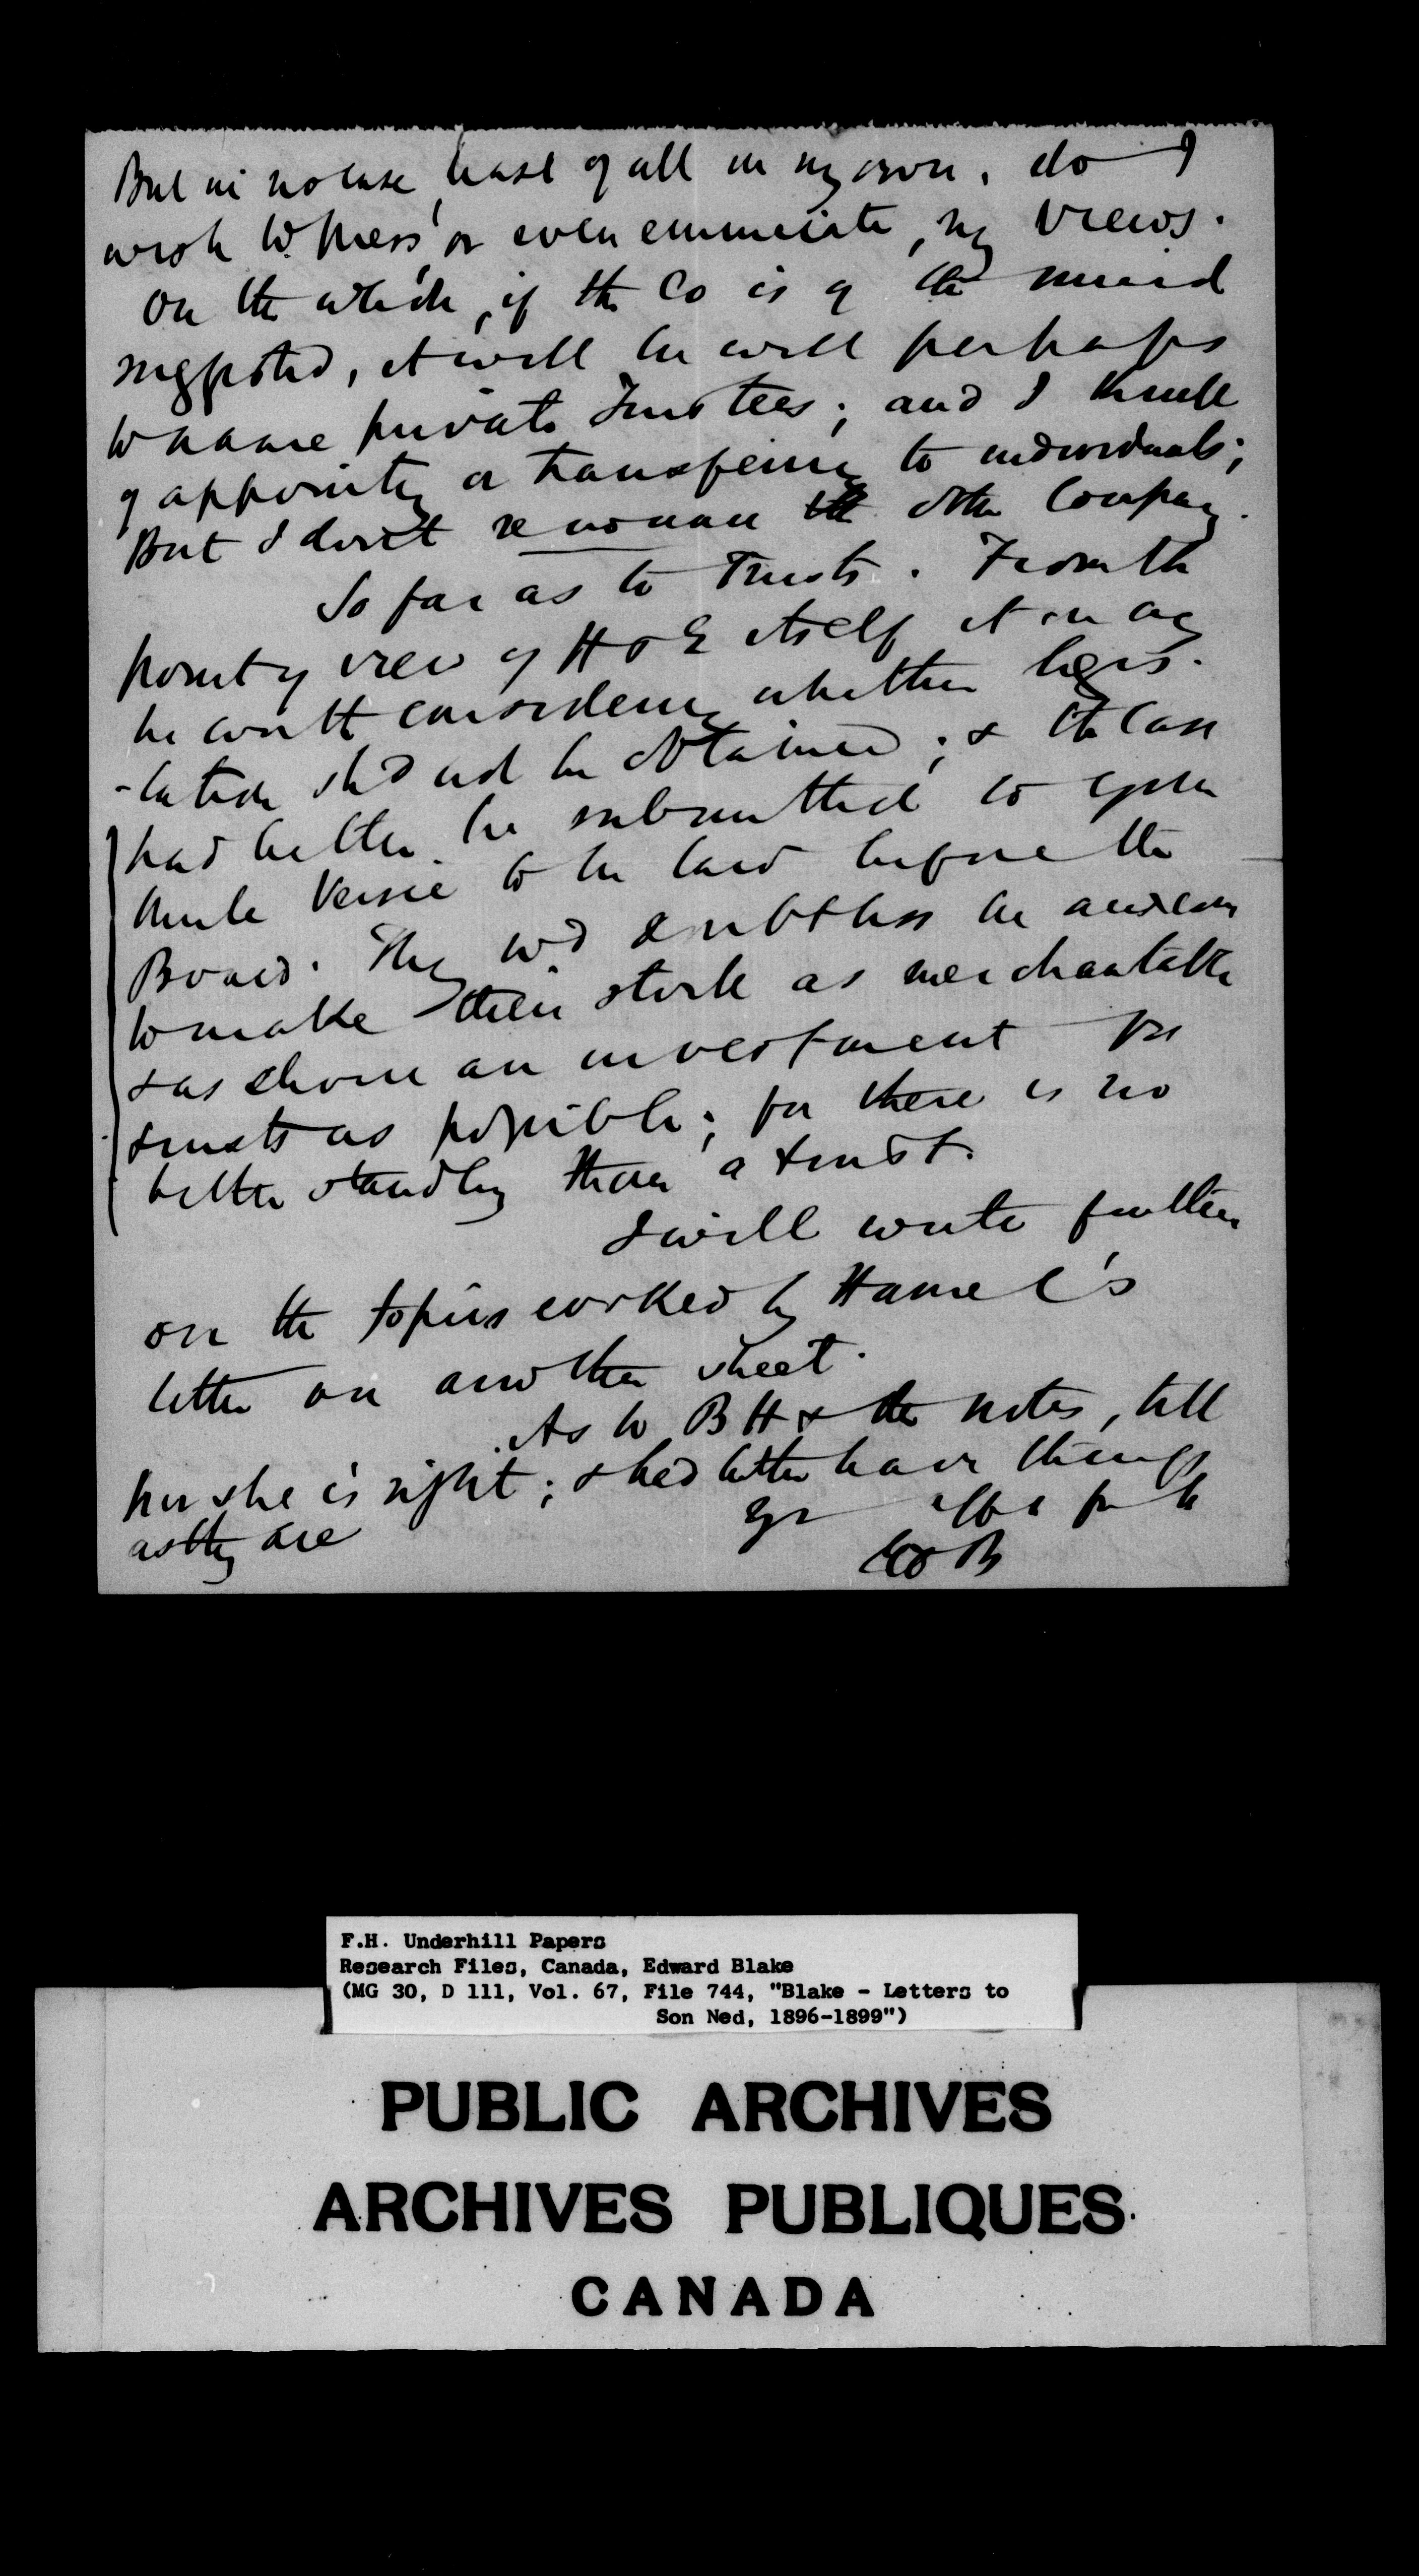 But in no case, least of all in my own, do I
wish to press or even enunciate, my views.
On the whole, if the Co is of the mind
suggested, it will be well perhaps
to name private Trustees; and I think
of appointing or transferring to individuals;
But I don't see no the other Company.
So far as to Trusts. From the
point of view of H & E itself it may
be worth considering whether legis-
-lation shd not be obtained; & the case
had better be submitted to
Uncle to be laid before the
Board. They wd doubtless be anxious
to make their stock as merchantable
& as choice an investment for
trusts as possible; for there is no
better standby than a trust.
I will write further
on the topics evoked by Hamel's
letter on another sheet.
As to B H & the notes, tell
her she is right; & had better have things
as they are
Yr affe fr
EB
F.H. Underhill Papers
Research Files, Canada, Edward Blake
(MG 30, D 111, Vol. 67, File 744, "Blake - Letters to
Son Ned, 1896-1899")
PUBLIC ARCHIVES
ARCHIVES PUBLIQUES
CANADA